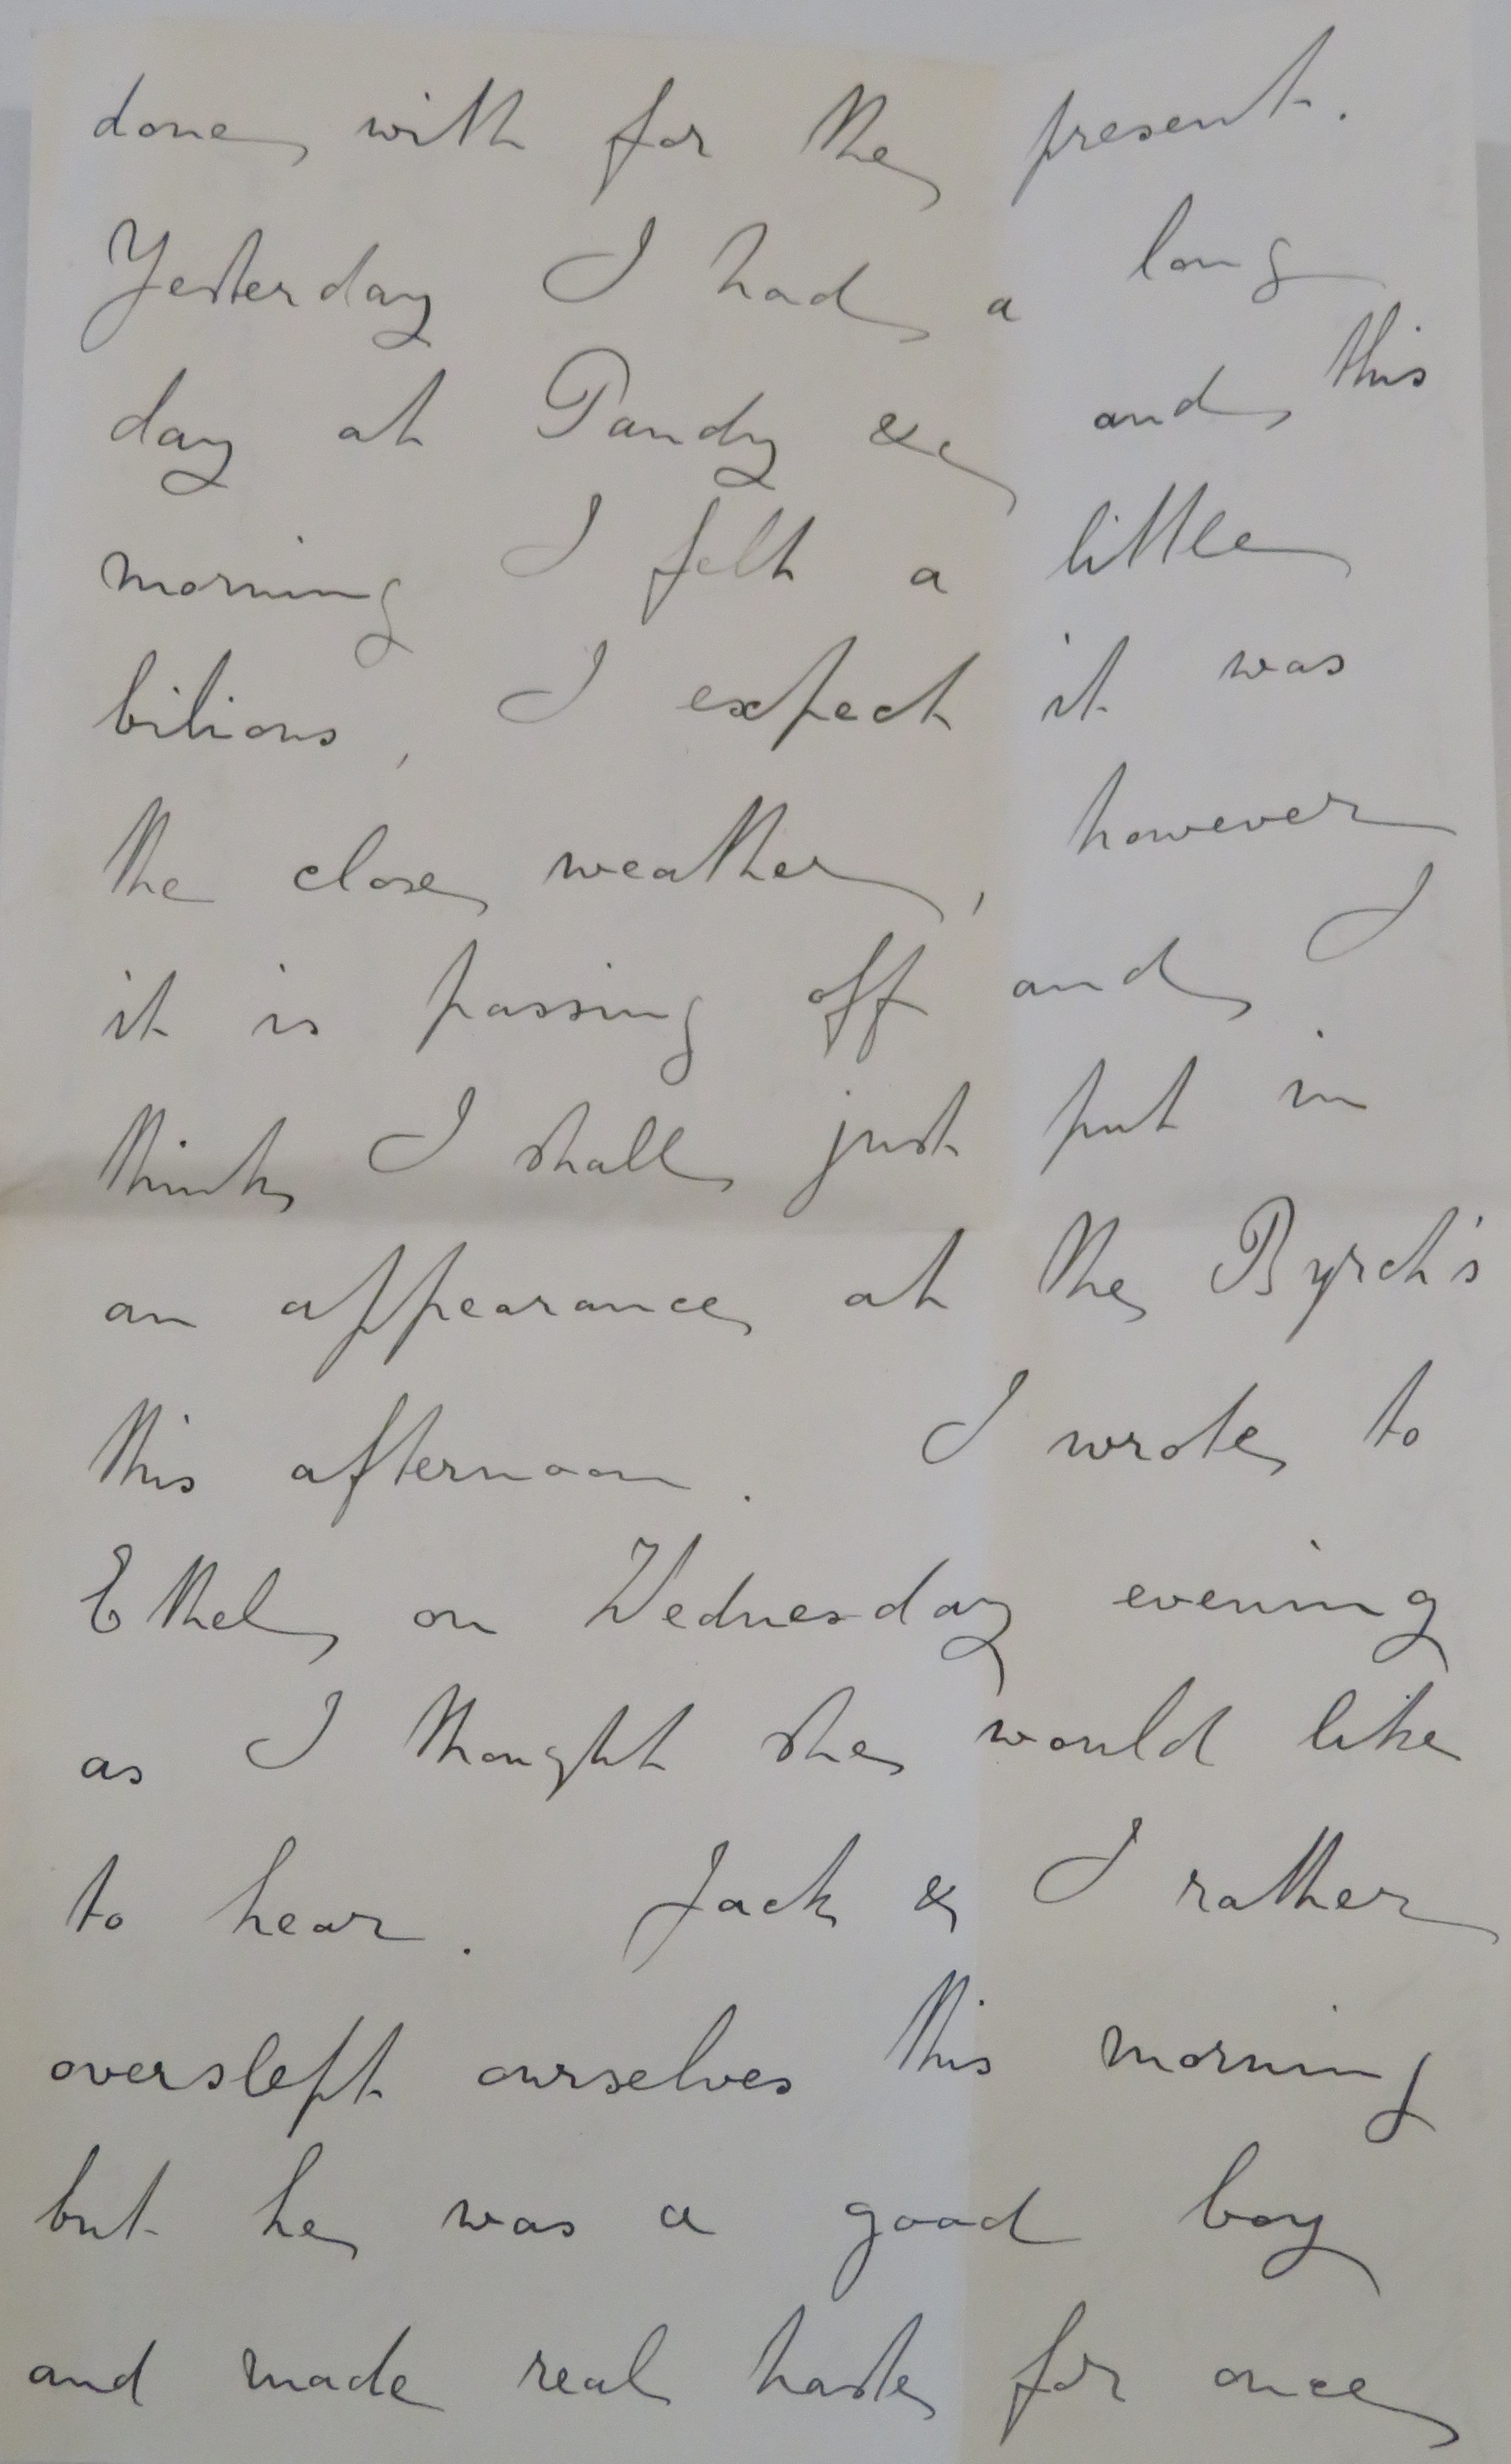 done with for the present.
Yesterday I had a long
day at Pandy &c and this
morning I felt a little
bilious, I expect it was
the close weather, however
it is passing off and I
think I shall just put in
an appearance at the Byrch's
this afternoon. I wrote to
Ethel on Wednesday evening
as I thought she would like
to hear. Jack & I rather
overslept ourselves this morning
but he was a good boy
and made real haste for once